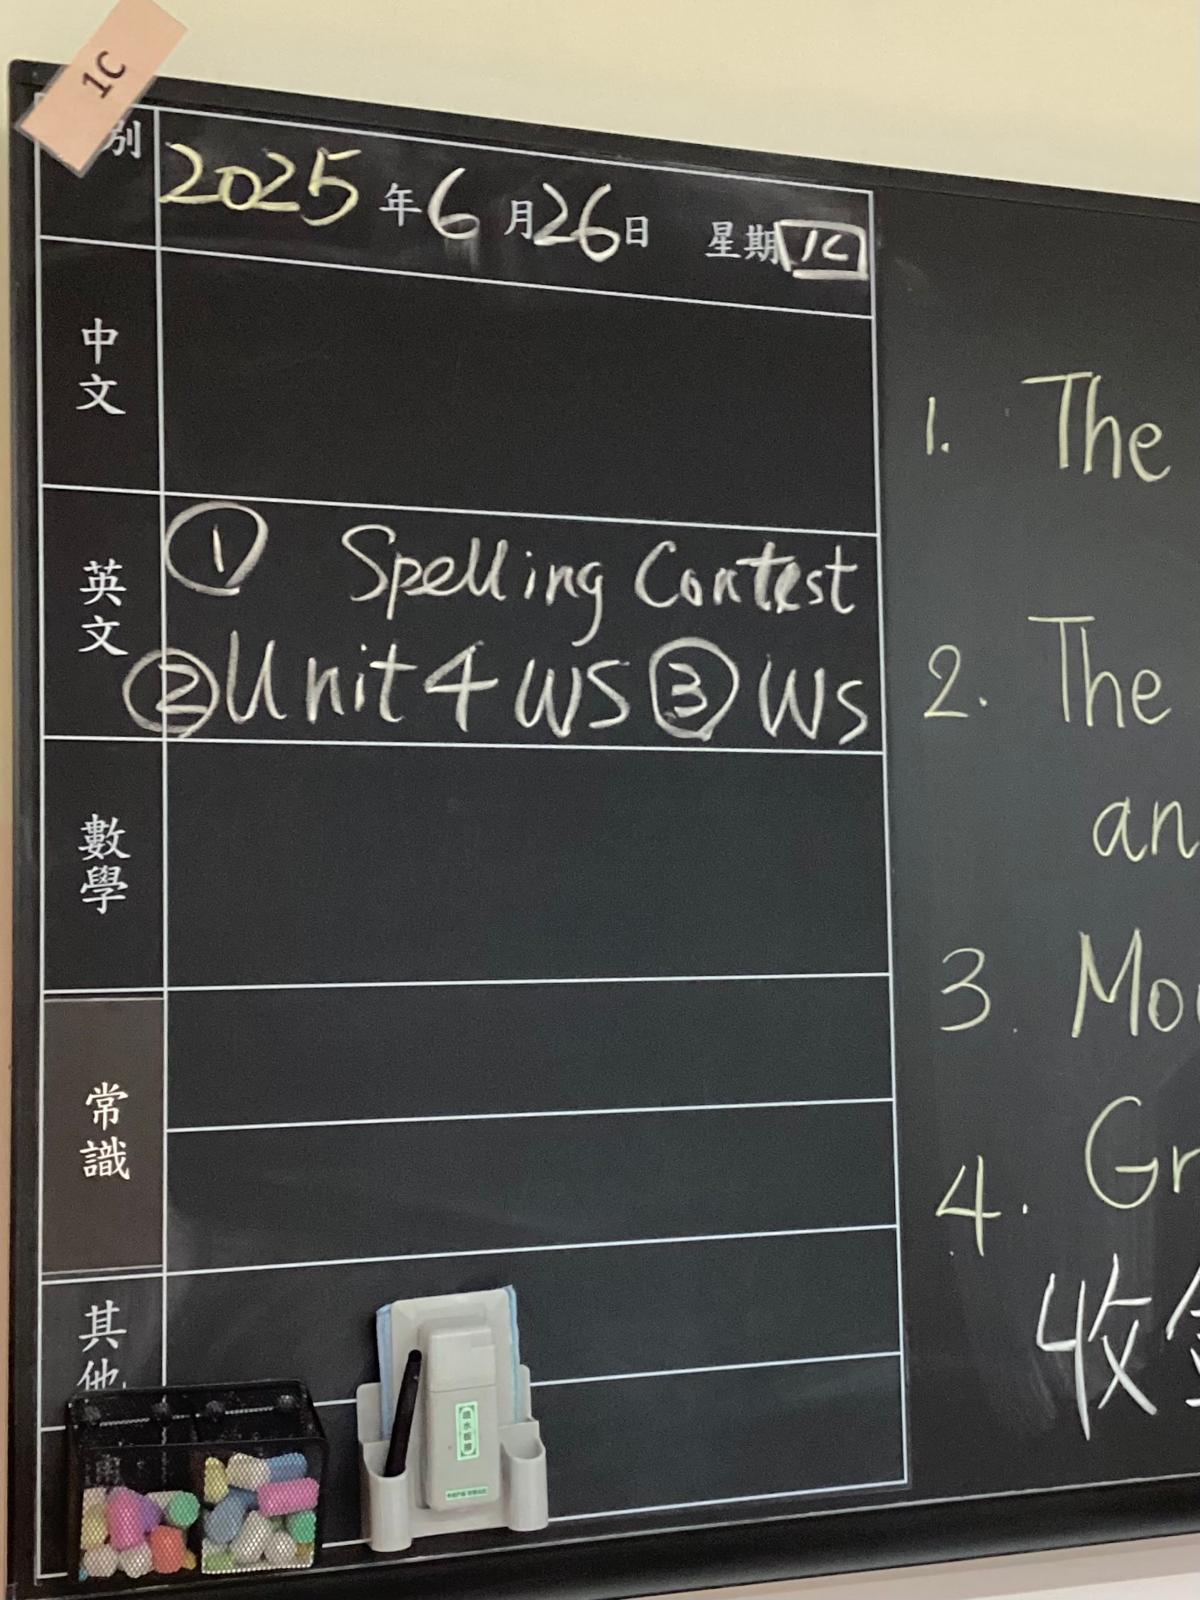 1C
別
2025年6月26日 星期 1C
中文
英文
① Spelling Contest
② Unit 4 WS ③ WS
數學
常識
其他
1. The
2. The
an
3. Mo
4. Gr
收